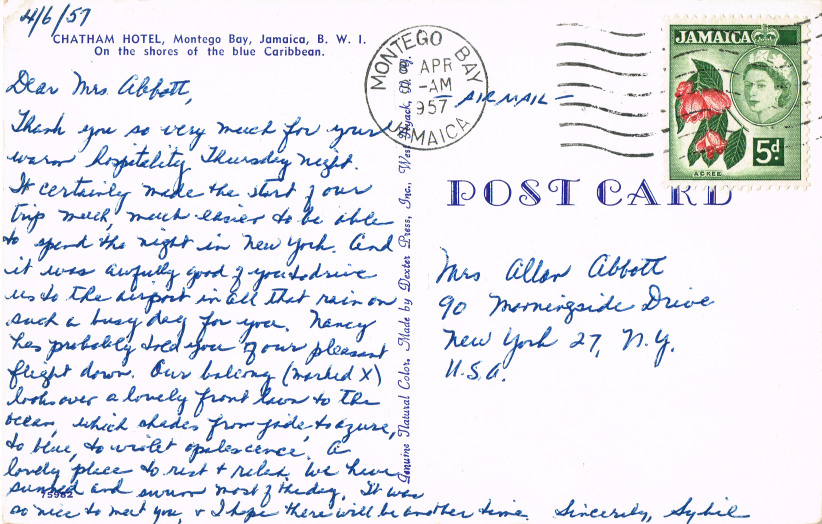 4/6/57
CHATHAM HOTEL, Montego Bay, Jamaica, B. W. I.
On the shores of the blue Caribbean.
Dear Mrs. Abbott,
Thank you so very much for your
warm hospitality Thursday night.
It certainly made the start of our
trip much, much easier to be able
to spend the night in New York. And
it was awfully good of you to drive
us to the airport in all that rain on
such a busy day for you. Nancy
has probably told you of our pleasant
flight down. Our balcony (marked X)
looks over a lovely front lawn to the
ocean, which shades from jade, to azure,
to blue, to violet opalescence. A
lovely place to rest + relax. We have
sunned and swum most of the day. It was
so nice to meet you, + I hope there will be another time. Sincerely, Sybil
75962
Genuine Natural Color. Made by Dexter Press, Inc., West Nyack, N. Y.
MONTEGO BAY
APR
-AM
957
JAMAICA
- AIR MAIL -
JAMAICA
5d
ACKEE
POST CARD
Mrs Allan Abbott
90 Morningside Drive
New York 27, N.Y.
U.S.A.